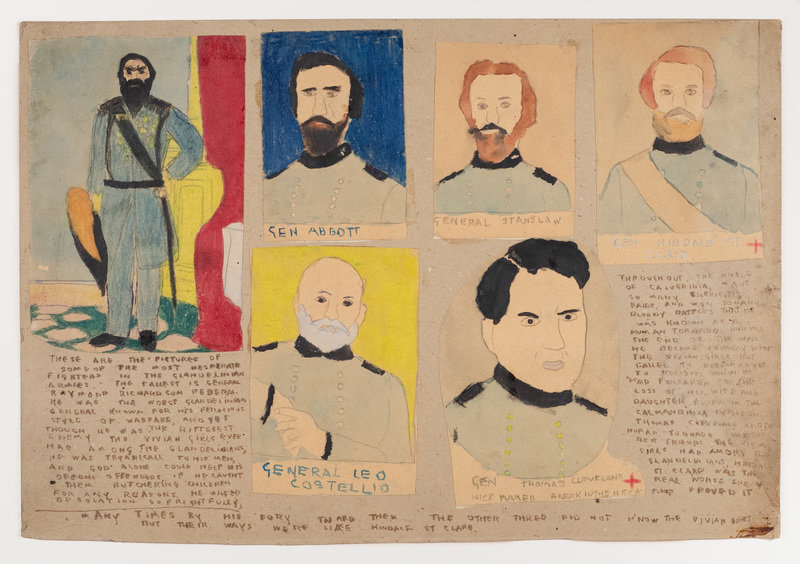 GEN ABBOTT
GENERAL STANSLAW
GEN HINDALE ST
CLARE
GENERAL LEO
COSTELLIO
GEN THOMAS CLEVELAND
NICK NAMED BREAK IN THE NECK
THESE ARE THE PICTURES OF
SOME OF THE MOST DESPERATE
FIGHTERS IN THE GLANDELINIAN
ARMIES. THE TALLEST IS GENERAL
RAYMOND RICHARDSON FEDERAL
HE WAS THE WORST GLANDELINIAN
GENERAL KNOWN FOR HIS FEROCIOUS
STYLE OF WARFARE, AND YET
THOUGH HE WAS THE BITTEREST
ENEMY THE VIVIAN GIRLS EVER
HAD AMONG THE GLANDELINIANS,
HE WAS TYRANICALL TO HIS MEN,
AND GOD ALONE COULD HELP HIS
OFFENDERS, IF HE CAUGHT
THEM BUTCHERING CHILDREN
FOR ANY REASONS. HE WISHED
DESOLATION SO FRIGHTFULLY,
MANY TIMES BY HIS FURY TWARD THEM THE OTHER THREE DID NOT KNOW THE VIVIAN GIRLS
BUT THEIR WAYS WERE LIKE HINDALE ST CLARE.
THROUGHOUT THE WHOLE
OF CALVERINIA, MADE
SO MANY
RAIDS, AND WON SO MANY
BLOODY BATTLES THAT HE
WAS KNOWN AS A
HUMAN TORNADO DURING
THE END OF THE WAR
HE BECAME FRIENDLY WITH
THE VIVIAN GIRLS BUT
FAILED TO
TO RELIGION WHICH HE
HAD FORSAKEN FOR THE
LOSS OF HIS WIFE AND
DAUGHTER KILLED IN THE
CALMANRINIA
THOMAS CLEVELAND ALSO
HUMAN TORNADO WAS
BEST FRIEND THE VIVIAN
GIRLS HAD AMONG
GLANDELINIANS,
ST CLARE WAS THE
REAL WORSE ENEMY
AND PROVED IT